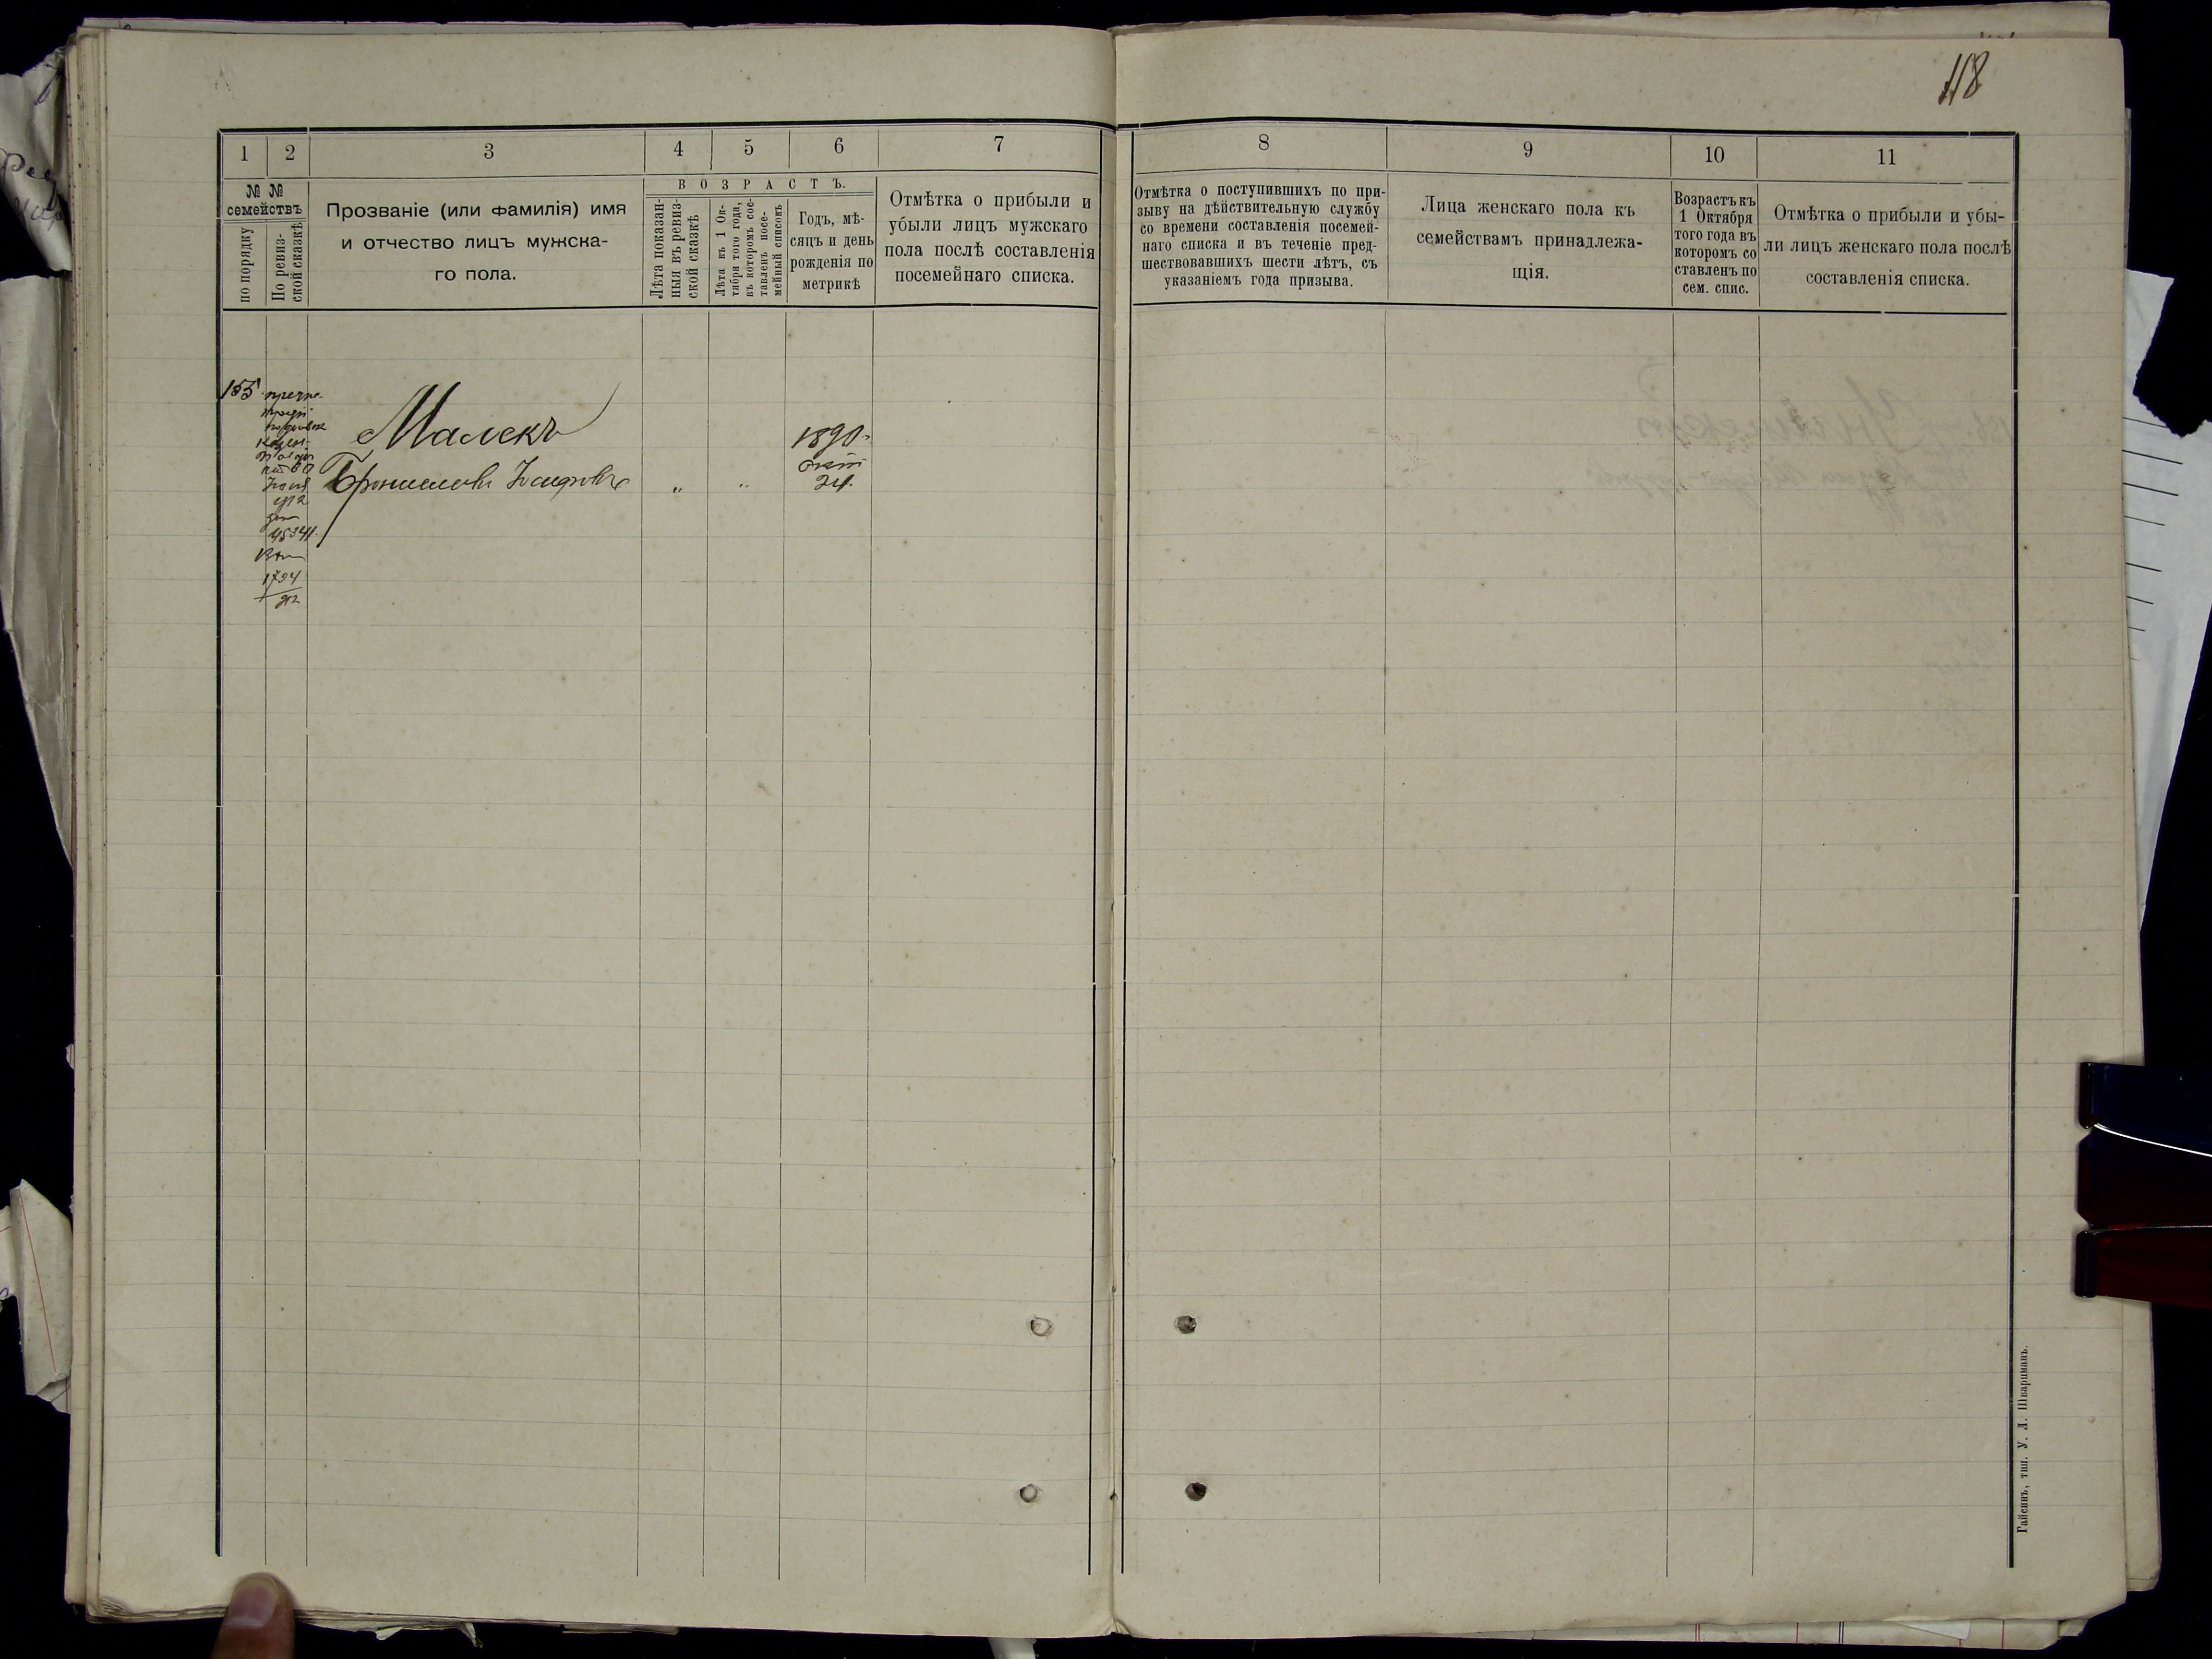 118
1 2 3 4 5 6 7
№ №
семействъ
по порядку
По ревиз-
ской сказкѣ
Прозваніе (или фамилія) имя
и отчество лицъ мужска-
го пола.
ВОЗРАСТЪ.
Лѣта показан-
ныя въ ревиз-
ской сказкѣ
Лѣта къ 1 Ок-
тября того года,
въ которомъ сос-
тавленъ посе-
мейный списокъ
Годъ, мѣ-
сяцъ и день
рожденія по
метрикѣ
Отмѣтка о прибыли и
убыли лицъ мужскаго
пола послѣ составленія
посемейнаго списка.
8 9 10 11
Отмѣтка о поступившихъ по при-
зыву на дѣйствительную службу
со времени составленія посемей-
наго списка и въ теченіе пред-
шествовавшихъ шести лѣтъ, съ
указаніемъ года призыва.
Лица женскаго пола къ
семействамъ принадлежа-
щія.
Возрастъ къ
1 Октября
того года въ
которомъ со
ставленъ по
сем. спис.
Отмѣтка о прибыли и убы-
ли лицъ женскаго пола послѣ
составленія списка.
155
Малекъ
Брониславъ Іосифовъ
" "
1890
окт
24.
45341
1794
912
Гайсинъ, тип. У. Л. Шварцманъ.